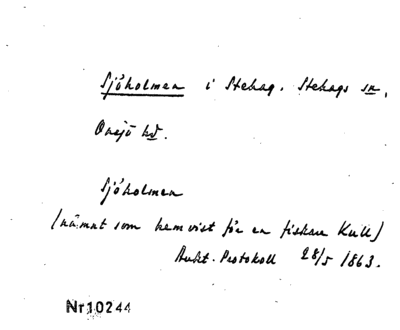 Sjöholmen i Stehag, Stehags sn,
Onsjö hd.
Sjöholmen
(nämnt som hemvist för en fiskare Kull)
Aukt. Protokoll 28/5 1863.
Nr 10244